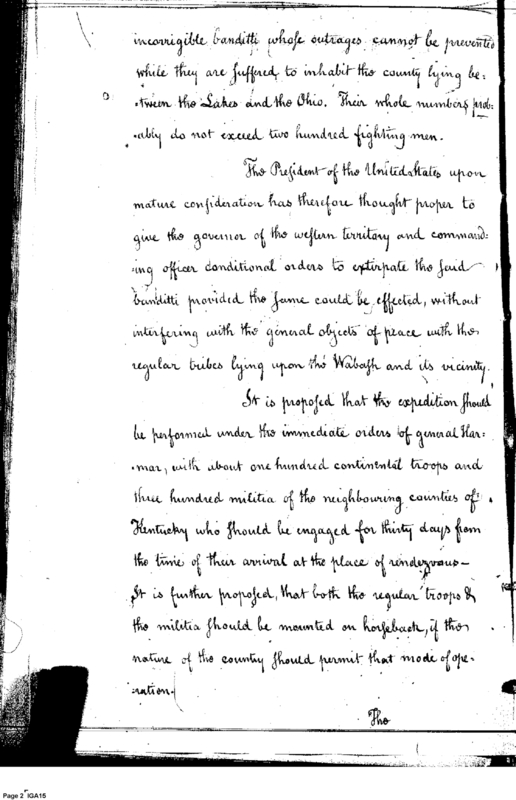 incorrigible banditti whose outrages cannot be prevented
while they are suffered to inhabit the county lying be-
-tween the Lakes and the Ohio. Their whole numbers prob-
-ably do not exceed two hundred fighting men.
The President of the United States upon
mature consideration has therefore thought proper to
give the governor of the western territory and command-
-ing officer conditional orders to extirpate the said
banditti provided the same could be effected, without
interfering with the general objects of peace with the
regular tribes lying upon the Wabash and its vicinity.
It is proposed that the expedition should
be performed under the immediate orders of general Har-
-mar, with about one hundred continental troops and
three hundred militia of the neighbouring counties of
Kentucky who should be engaged for thirty days from
the time of their arrival at the place of rendezvous—
It is further proposed, that both the regular troops &
the militia should be mounted on horseback, if the
nature of the country should permit that mode of ope-
-ration.
The
Page 2 IGA15